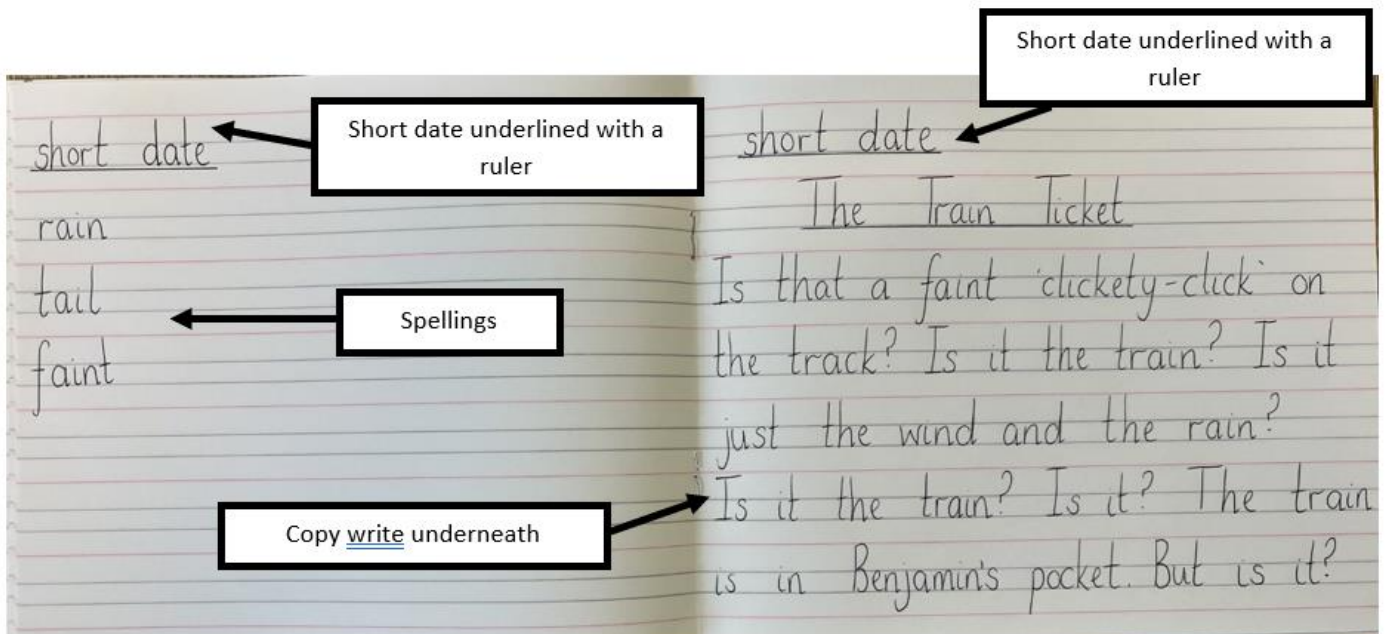 Short date underlined with a
ruler
short date
rain
tail
Spellings
faint
Copy write underneath
Short date underlined with a
ruler
short date
The Train Ticket
Is that a faint 'clickety-click' on
the track? Is it the train? Is it
just the wind and the rain?
Is it the train? Is it? The train
is in Benjamin's pocket. But is it?